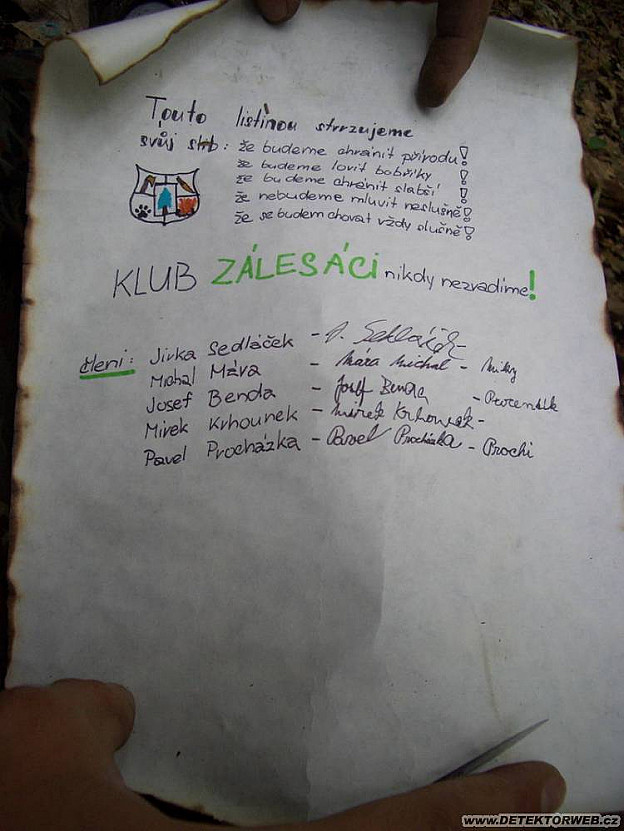 Touto listinou strrzujeme
svůj slib: že budeme chránit přírodu!
že budeme lovit bobříky!
že budeme chránit slabší!
že nebudeme mluvit neslušně!
že se budem chovat vždy slušně!
KLUB ZÁLESÁCI nikdy nezradíme!
členi: Jirka Sedláček -
Michal Máva - Máva Michal - Miky
Josef Benda - Josef Benda -
Mirek Krhounek - Mirek Krhounek -
Pavel Procházka - Pavel Procházka - Prochi
www.DETEKTORWEB.cz